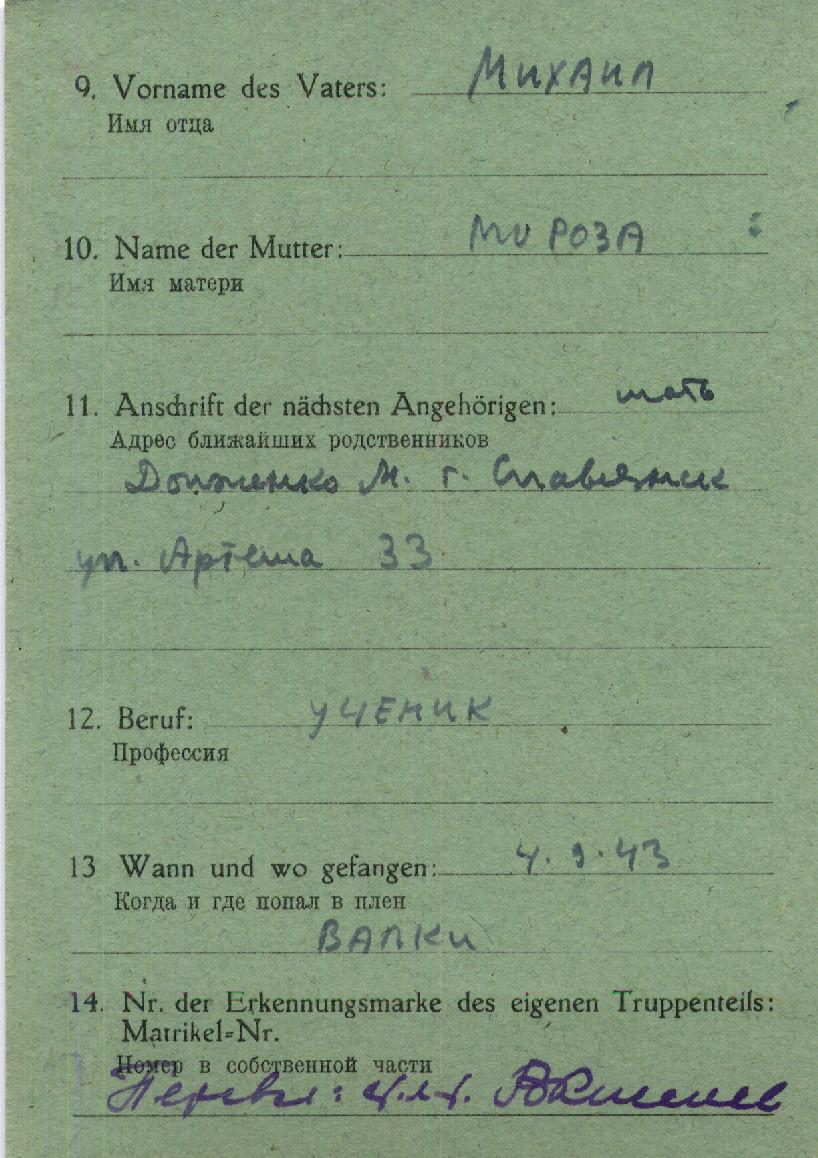 9. Vorname des Vaters: МИХАИЛ
Имя отца
10. Name der Mutter: МИРОЗА
Имя матери
11. Anschrift der nächsten Angehörigen: мать
Адрес ближайших родственников
Долженко М. г. Славянск
ул. Артема 33
12. Beruf: УЧЕНИК
Профессия
13 Wann und wo gefangen: 4.9.43
Когда и где попал в плен
ВАЛКИ
14. Nr. der Erkennungsmarke des eigenen Truppenteils:
Matrikel=Nr.
Номер в собственной части